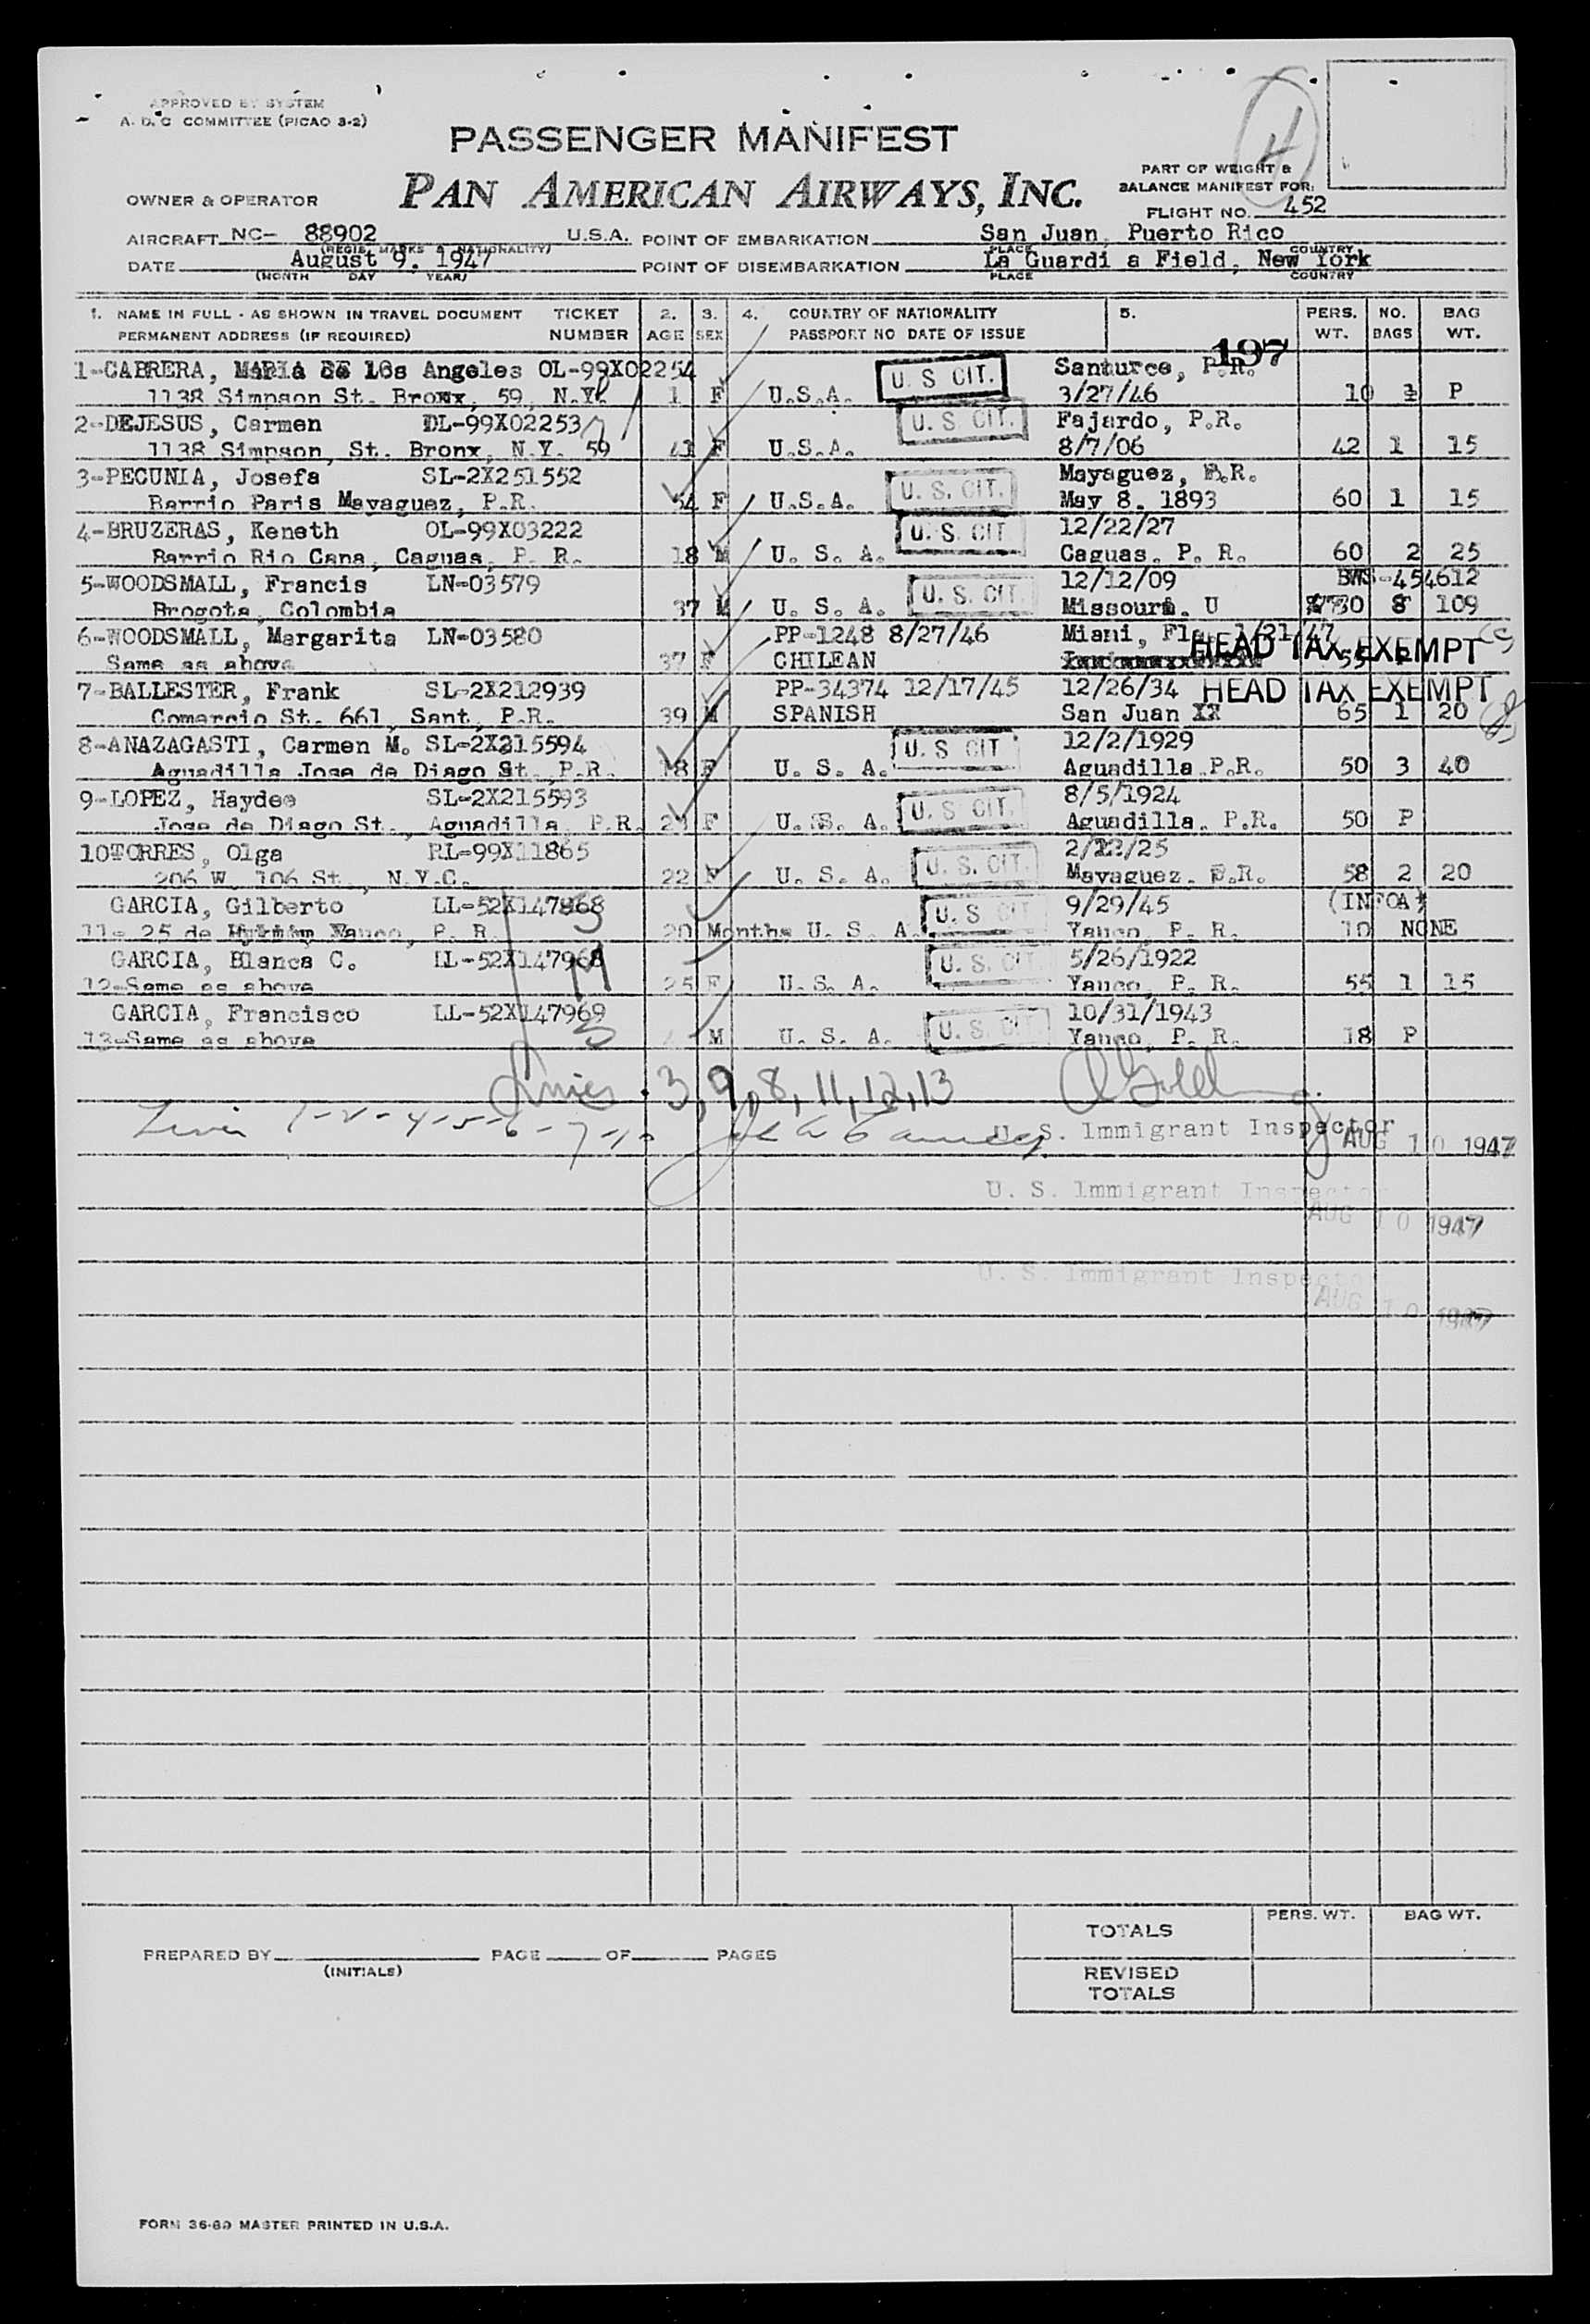 APPROVED BY SYSTEM
A. D. C COMMITTEE (PICAO 3-2)
4
PASSENGER MANIFEST
PART OF WEIGHT &
BALANCE MANIFEST FOR:
OWNER & OPERATOR PAN AMERICAN AIRWAYS, INC.
FLIGHT NO. 452
AIRCRAFT NC- 88902 U.S.A. POINT OF EMBARKATION San Juan, Puerto Rico
(REGIS. MARKS & NATIONALITY) PLACE COUNTRY
DATE August 9, 1947 POINT OF DISEMBARKATION La Guardi a Field, New York
(MONTH DAY YEAR) PLACE COUNTRY
1. NAME IN FULL - AS SHOWN IN TRAVEL DOCUMENT TICKET 2. 3. 4. COUNTRY OF NATIONALITY 5. PERS. NO. BAG
PERMANENT ADDRESS (IF REQUIRED) NUMBER AGE SEX PASSPORT NO DATE OF ISSUE WT. BAGS WT.
197
1-CABRERA, MARIA DE LOs Angeles OL-99X02254 U. S CIT. Santurce, P.R.
1138 Simpson St. Bronx, 59, N.Y. 1 F U.S.A. 3/27/46 10 P
2-DEJESUS, Carmen DL-99X02253 U. S CIT. Fajardo, P.R.
1138 Simpson, St. Bronx, N.Y. 59 41 F U.S.A. 8/7/06 42 1 15
3-PECUNIA, Josefa SL-2X251552 U. S. CIT. Mayaguez, P.R.
Barrio Paris Mayaguez, P.R. 54 F U.S.A. May 8, 1893 60 1 15
4-BRUZERAS, Keneth OL-99X03222 U. S. CIT 12/22/27
Barrio Rio Cana, Caguas, P. R. 18 M U. S. A. Caguas, P. R. 60 2 25
5-WOODSMALL, Francis LN-03579 U. S. CIT. 12/12/09 BWS-454612
Brogota, Colombia 37 M U. S. A. Missouri. U 80 8 109
6-WOODSMALL, Margarita LN-03580 PP-1248 8/27/46 Miami, Fla. 1/21/47
Same as above 37 F CHILEAN HEAD TAX EXEMPT
7-BALLESTER, Frank SL-2X212939 PP-34374 12/17/45 12/26/34 HEAD TAX EXEMPT
Comercio St. 661, Sant, P.R. 39 M SPANISH San Juan XX 65 1 20
8-ANAZAGASTI, Carmen M. SL-2X215594 U. S CIT 12/2/1929
Aguadilla Jose de Diago St. P.R. 18 F U. S. A. Aguadilla P.R. 50 3 40
9-LOPEZ, Haydee SL-2X215593 U. S CIT. 8/5/1924
Jose de Diago St., Aguadilla, P.R. 23 F U. S. A. Aguadilla, P.R. 50 P
10TORRES, Olga RL-99X11865 U. S. CIT. 2/12/25
206 W. 106 St., N.Y.C. 22 F U. S. A. Mayaguez. P.R. 58 2 20
GARCIA, Gilberto LL-52X147968 U. S CIT 9/29/45 (INFOA)
11- 25 de Yauco, P. R. 20 Months U. S. A. Yauco, P. R. 10 NONE
GARCIA, Blanca C. LL-52X147968 U. S. CIT 5/26/1922
12-Same as above 25 F U. S. A. Yauco, P. R. 55 1 15
GARCIA, Francisco LL-52X147969 U. S. CIT 10/31/1943
13-Same as above M U. S. A. Yauco, P. R. 18 P
3, 9, 8, 11, 12, 13
1-2-4-5-6-7-10
U. S. Immigrant Inspector AUG 10 1947
U. S. Immigrant Inspector
AUG 10 1947
U. S. Immigrant Inspector
AUG 10 1947
TOTALS PERS. WT. BAG WT.
PREPARED BY PAGE OF PAGES
(INITIALS)
REVISED
TOTALS
FORM 36-80 MASTER PRINTED IN U.S.A.